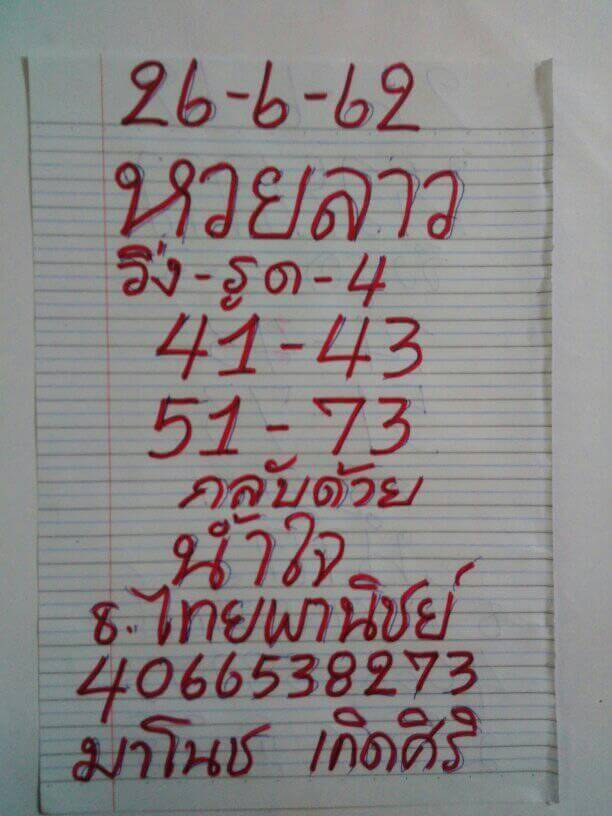 26-6-62
หวยลาว
วิ่ง-รูด-4
41-43
51-73
กลับด้วย
น้ำใจ
ธ.ไทยพานิชย์
4066538273
มาโนช เกิดศิริ